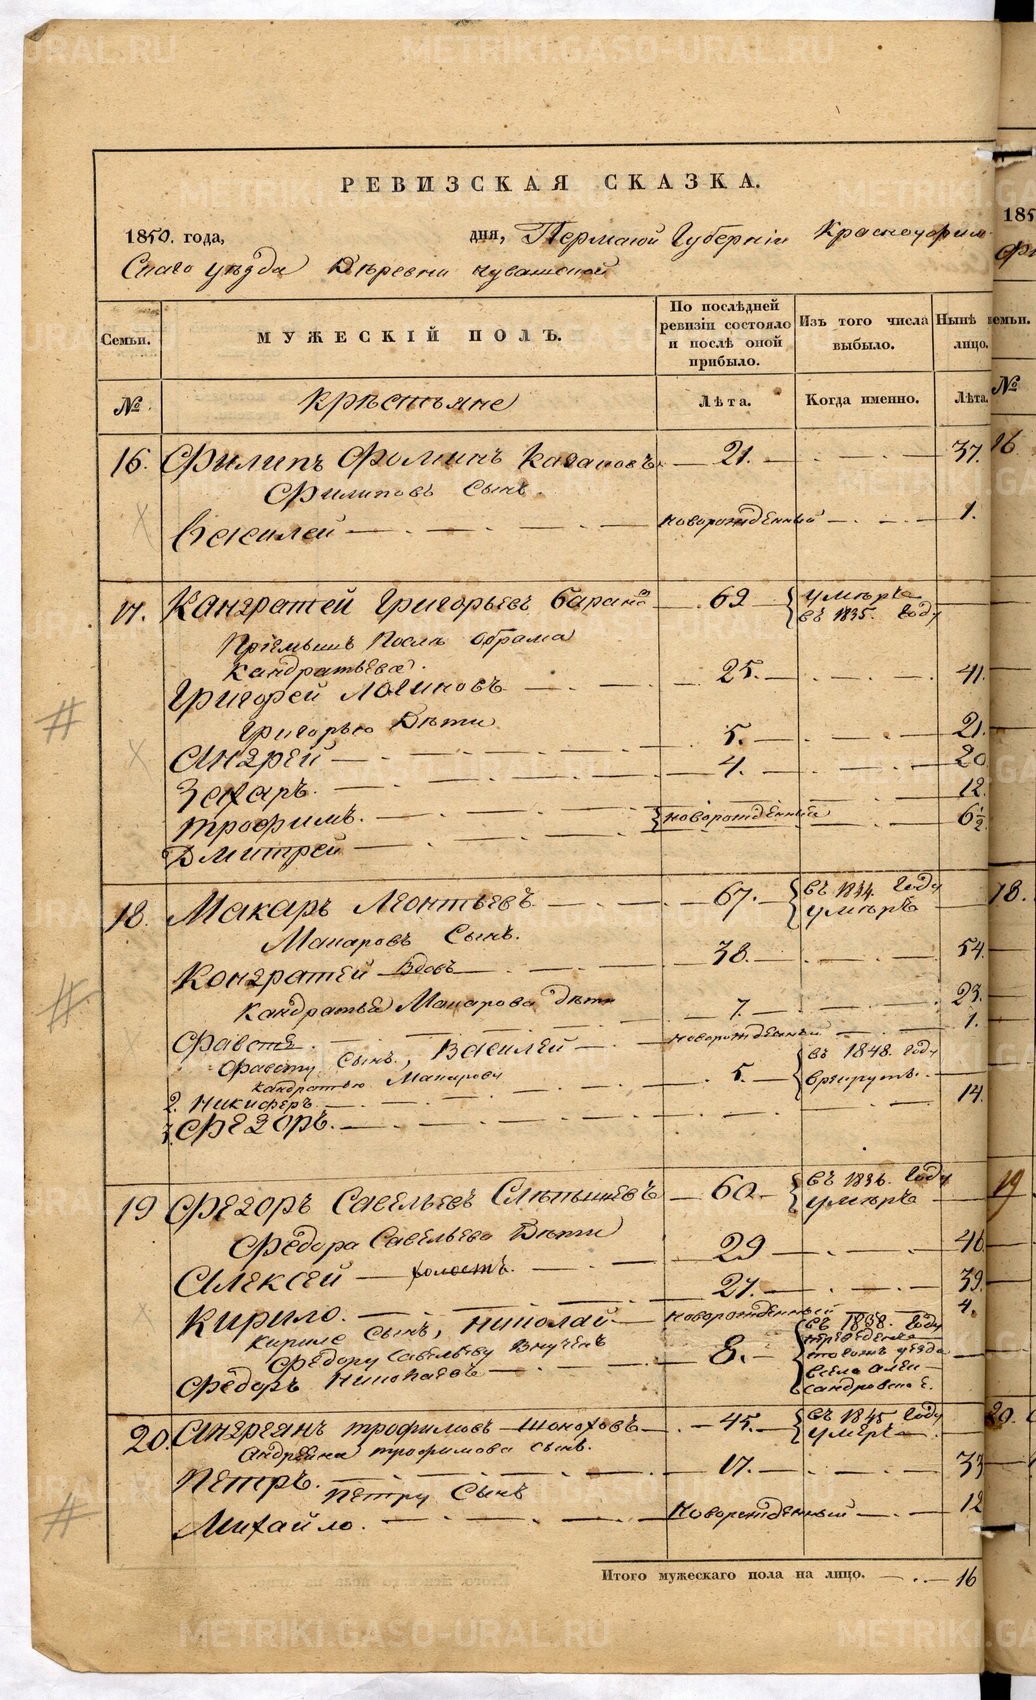 РЕВИЗСКАЯ СКАЗКА.
1850. года, дня, Пермской Губерніи Красноуфим
Скаго уѣзда Деревни Чувашской
Семьи. МУЖЕСКІЙ ПОЛЪ. По послѣдней ревизіи состояло и послѣ оной прибыло. Изъ того числа выбыло. Нынѣ лицо.
№. Крѣстьяне Лѣта. Когда именно. Лѣта.
16. Филипъ Фоминъ Казаковъ 21. 37.
Филиповъ Сынъ.
Василей новорожденный 1.
17. Кандратей Григорьевъ 62 умѣръ въ 1835. Году
Приемышъ После
Кандратьева.
Григорей Логиновъ 25. 41.
Григорью Дѣти
Андрей 5. 21.
Захаръ. 4. 20
Трофимъ. новорожденныи 12.
Дмитрей 6½
18. Макаръ Леонтьевъ 67. въ 1834. Году умѣръ
Макаровъ Сынъ.
Кондратей Вдовъ 38. 54.
Кандратья Макарова дѣти
Фавстъ. 7. 23.
Фавсту Сынъ, Василей новорожденный 1.
Кандратью Макарову
2. Никифоръ 5. въ 1848. году врекруты.
3. Федоръ. 14.
19 Федоръ Савельевъ Слѣпышевъ 60. въ 1836. Году умѣръ
Федора Савельева Дѣти
Алексей холостъ. 29 46
Кирило. 27. 39.
Кириле Сынъ, Николай новорожденный 4.
Федору Савельеву Внучекъ
Федоръ Николаевъ 8. въ 1838. Году
20. Андреянъ Трофимовъ 45. въ 1845 Году умеръ
Андреяна Трофимова сынъ.
Петръ. 17. 33
Петру Сынъ
Михайло. Новорожденный 12
Итого мужескаго пола на лицо. 16
METRIKI.GASO-URAL.RU